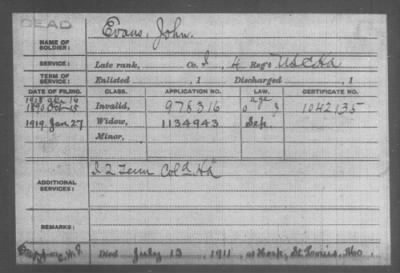 DEAD
NAME OF SOLDIER: Evans, John.
SERVICE: Late rank, Co. I, 4 Reg't U S C H A
TERM OF SERVICE: Enlisted , 1 Discharged , 1
DATE OF FILING. CLASS. APPLICATION NO. LAW. CERTIFICATE NO.
1890 Oct 15 Invalid, 978316 1042135
1919 Jan 27 Widow, 1134943 Sep.
Minor,
ADDITIONAL SERVICES: I 2 Tenn Col'd HA
REMARKS:
Died July 13 1911, at St Louis, Mo.